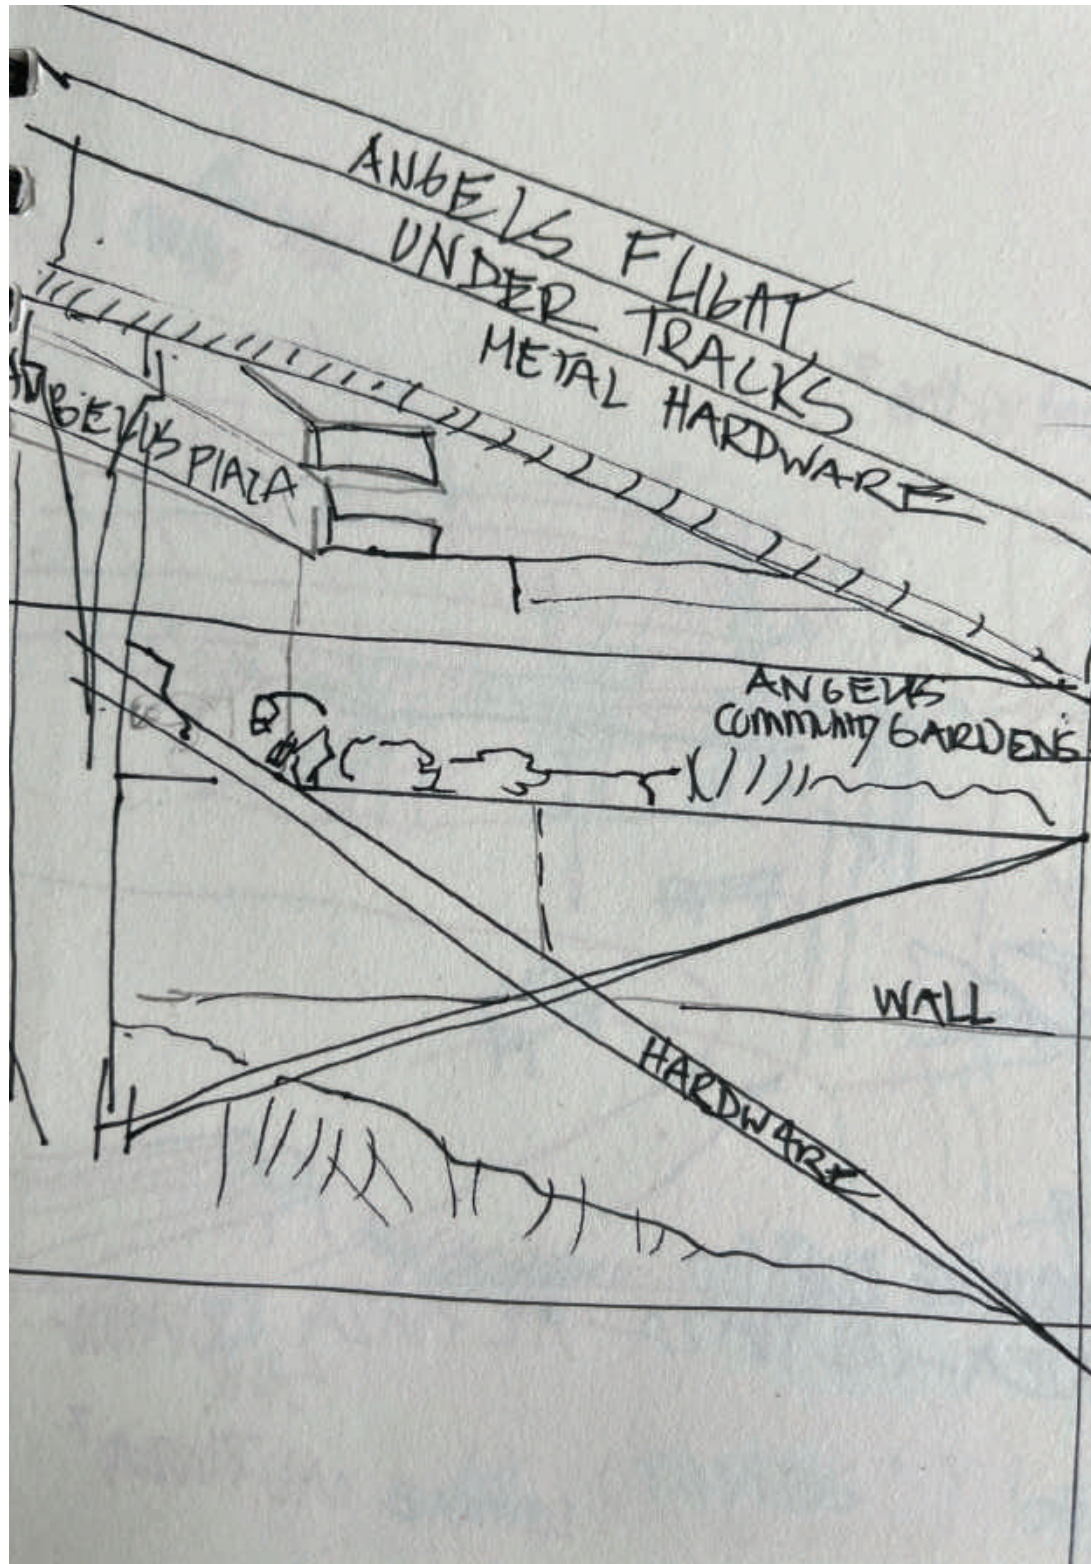 ANGELS FLIGHT
UNDER TRACKS
METAL HARDWARE
ANGELUS PLAZA
ANGELUS
COMMUNITY GARDENS
WALL
HARDWARE